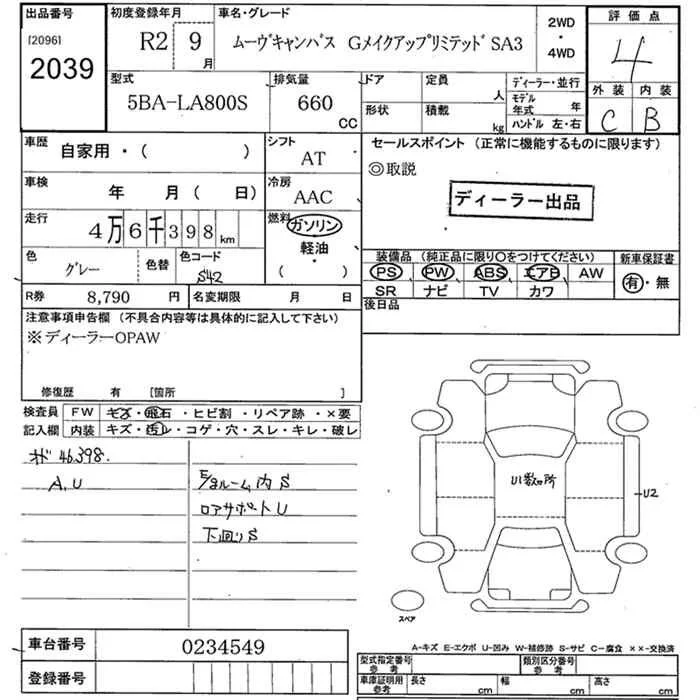 出品番号 初度登録年月 車名・グレード 2WD・4WD 評価点
[2096] 2039 R2 9月 ムーヴキャンバス GメイクアップリミテッドSA3 4
型式 排気量 ドア 定員 人 ディーラー・並行 外装 内装
5BA-LA800S 660 CC 形状 積載 kg モデル年式 年 ハンドル 左・右 C B
車歴 自家用・( ) シフト AT セールスポイント (正常に機能するものに限ります)
◎取説
車検 年 月( 日) 冷房 AAC ディーラー出品
走行 4万6千398km 燃料 ガソリン・軽油・( )
色 グレー 色替 色コード S42
装備品 (純正品に限り〇をつけてください) 新車保証書
PS PW ABS エアB AW 有・無
SR ナビ TV カワ
R券 8,790 円 名変期限 月 日 後日品
注意事項申告欄 (不具合内容等は具体的に記入して下さい)
※ディーラーOPAW
修復歴 有 [箇所 ]
検査員 FW キズ・飛石・ヒビ割・リペア跡・×要
記入欄 内装 キズ・汚レ・コゲ・穴・スレ・キレ・破レ
オド 46,398.
A,U
E/gルーム内 S
ロアサポートU
下回りS
U数ヶ所
U2
スペア
A-キズ E-エクボ U-凹み W-補修跡 S-サビ C-腐食 ××-交換済
車台番号 0234549
登録番号
型式指定番号 参考 類別区分番号 参考
車庫証明用 参考 長さ cm 幅 cm 高さ cm